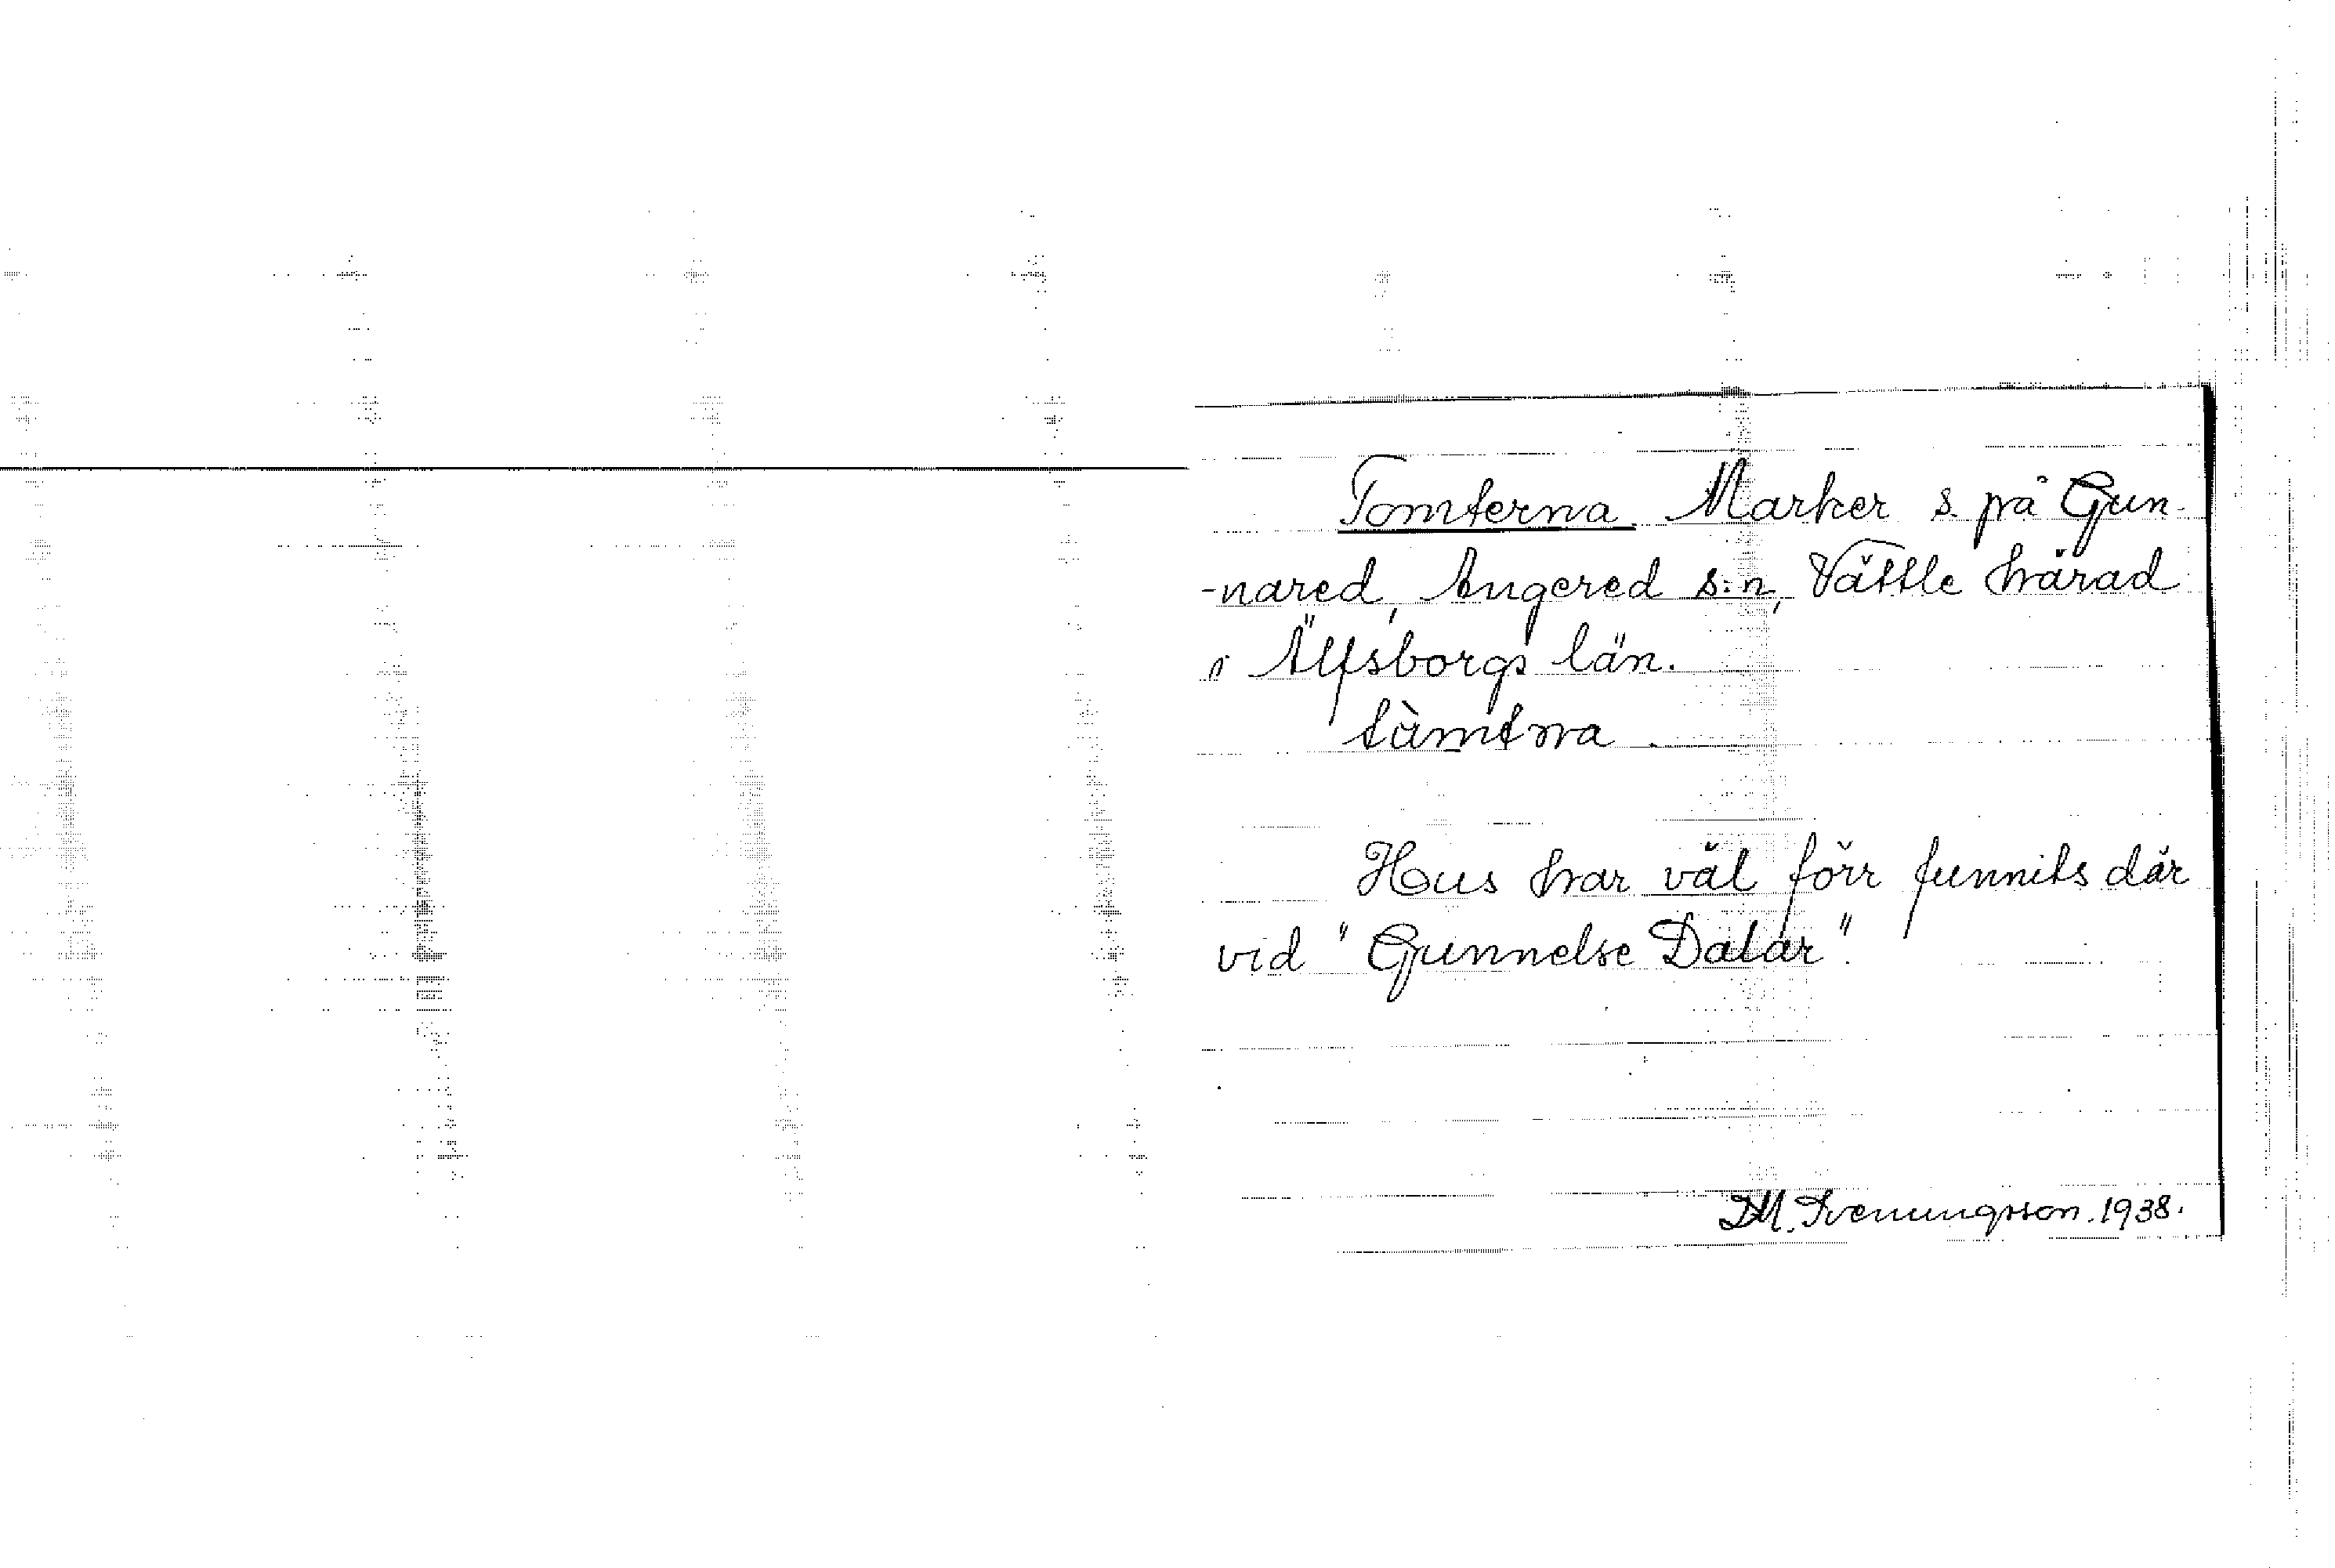 Tomterna. Marker s. på Gun-
-nared, Angered s:n, Vättle härad
i Älfsborgs län.
tùmtna.
Hus har väl förr funnits där
vid "Gunnelse Dalar".
D.M. Svenungsson. 1938.